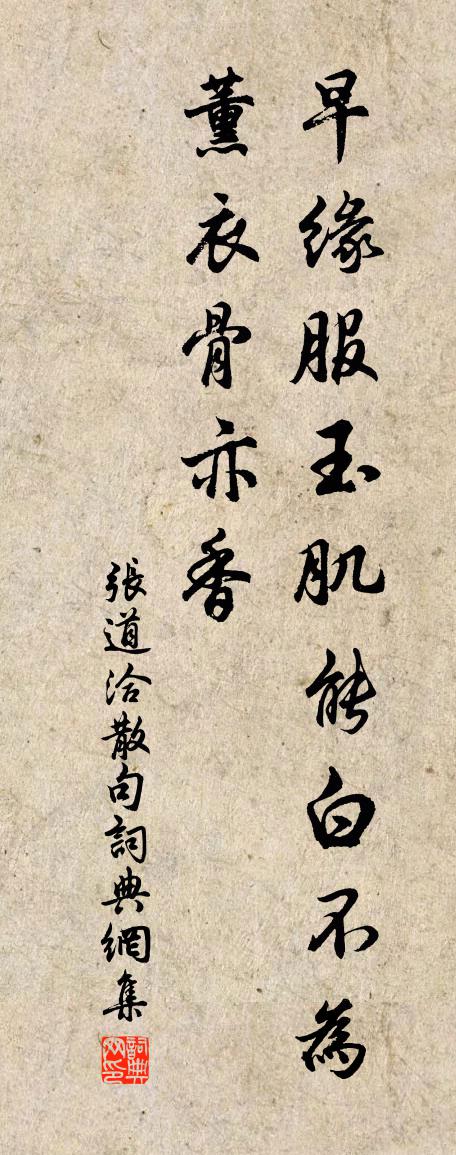 早緣服玉肌能白不為
薰衣骨亦香
張道洽散句詞典網集
詞典网印